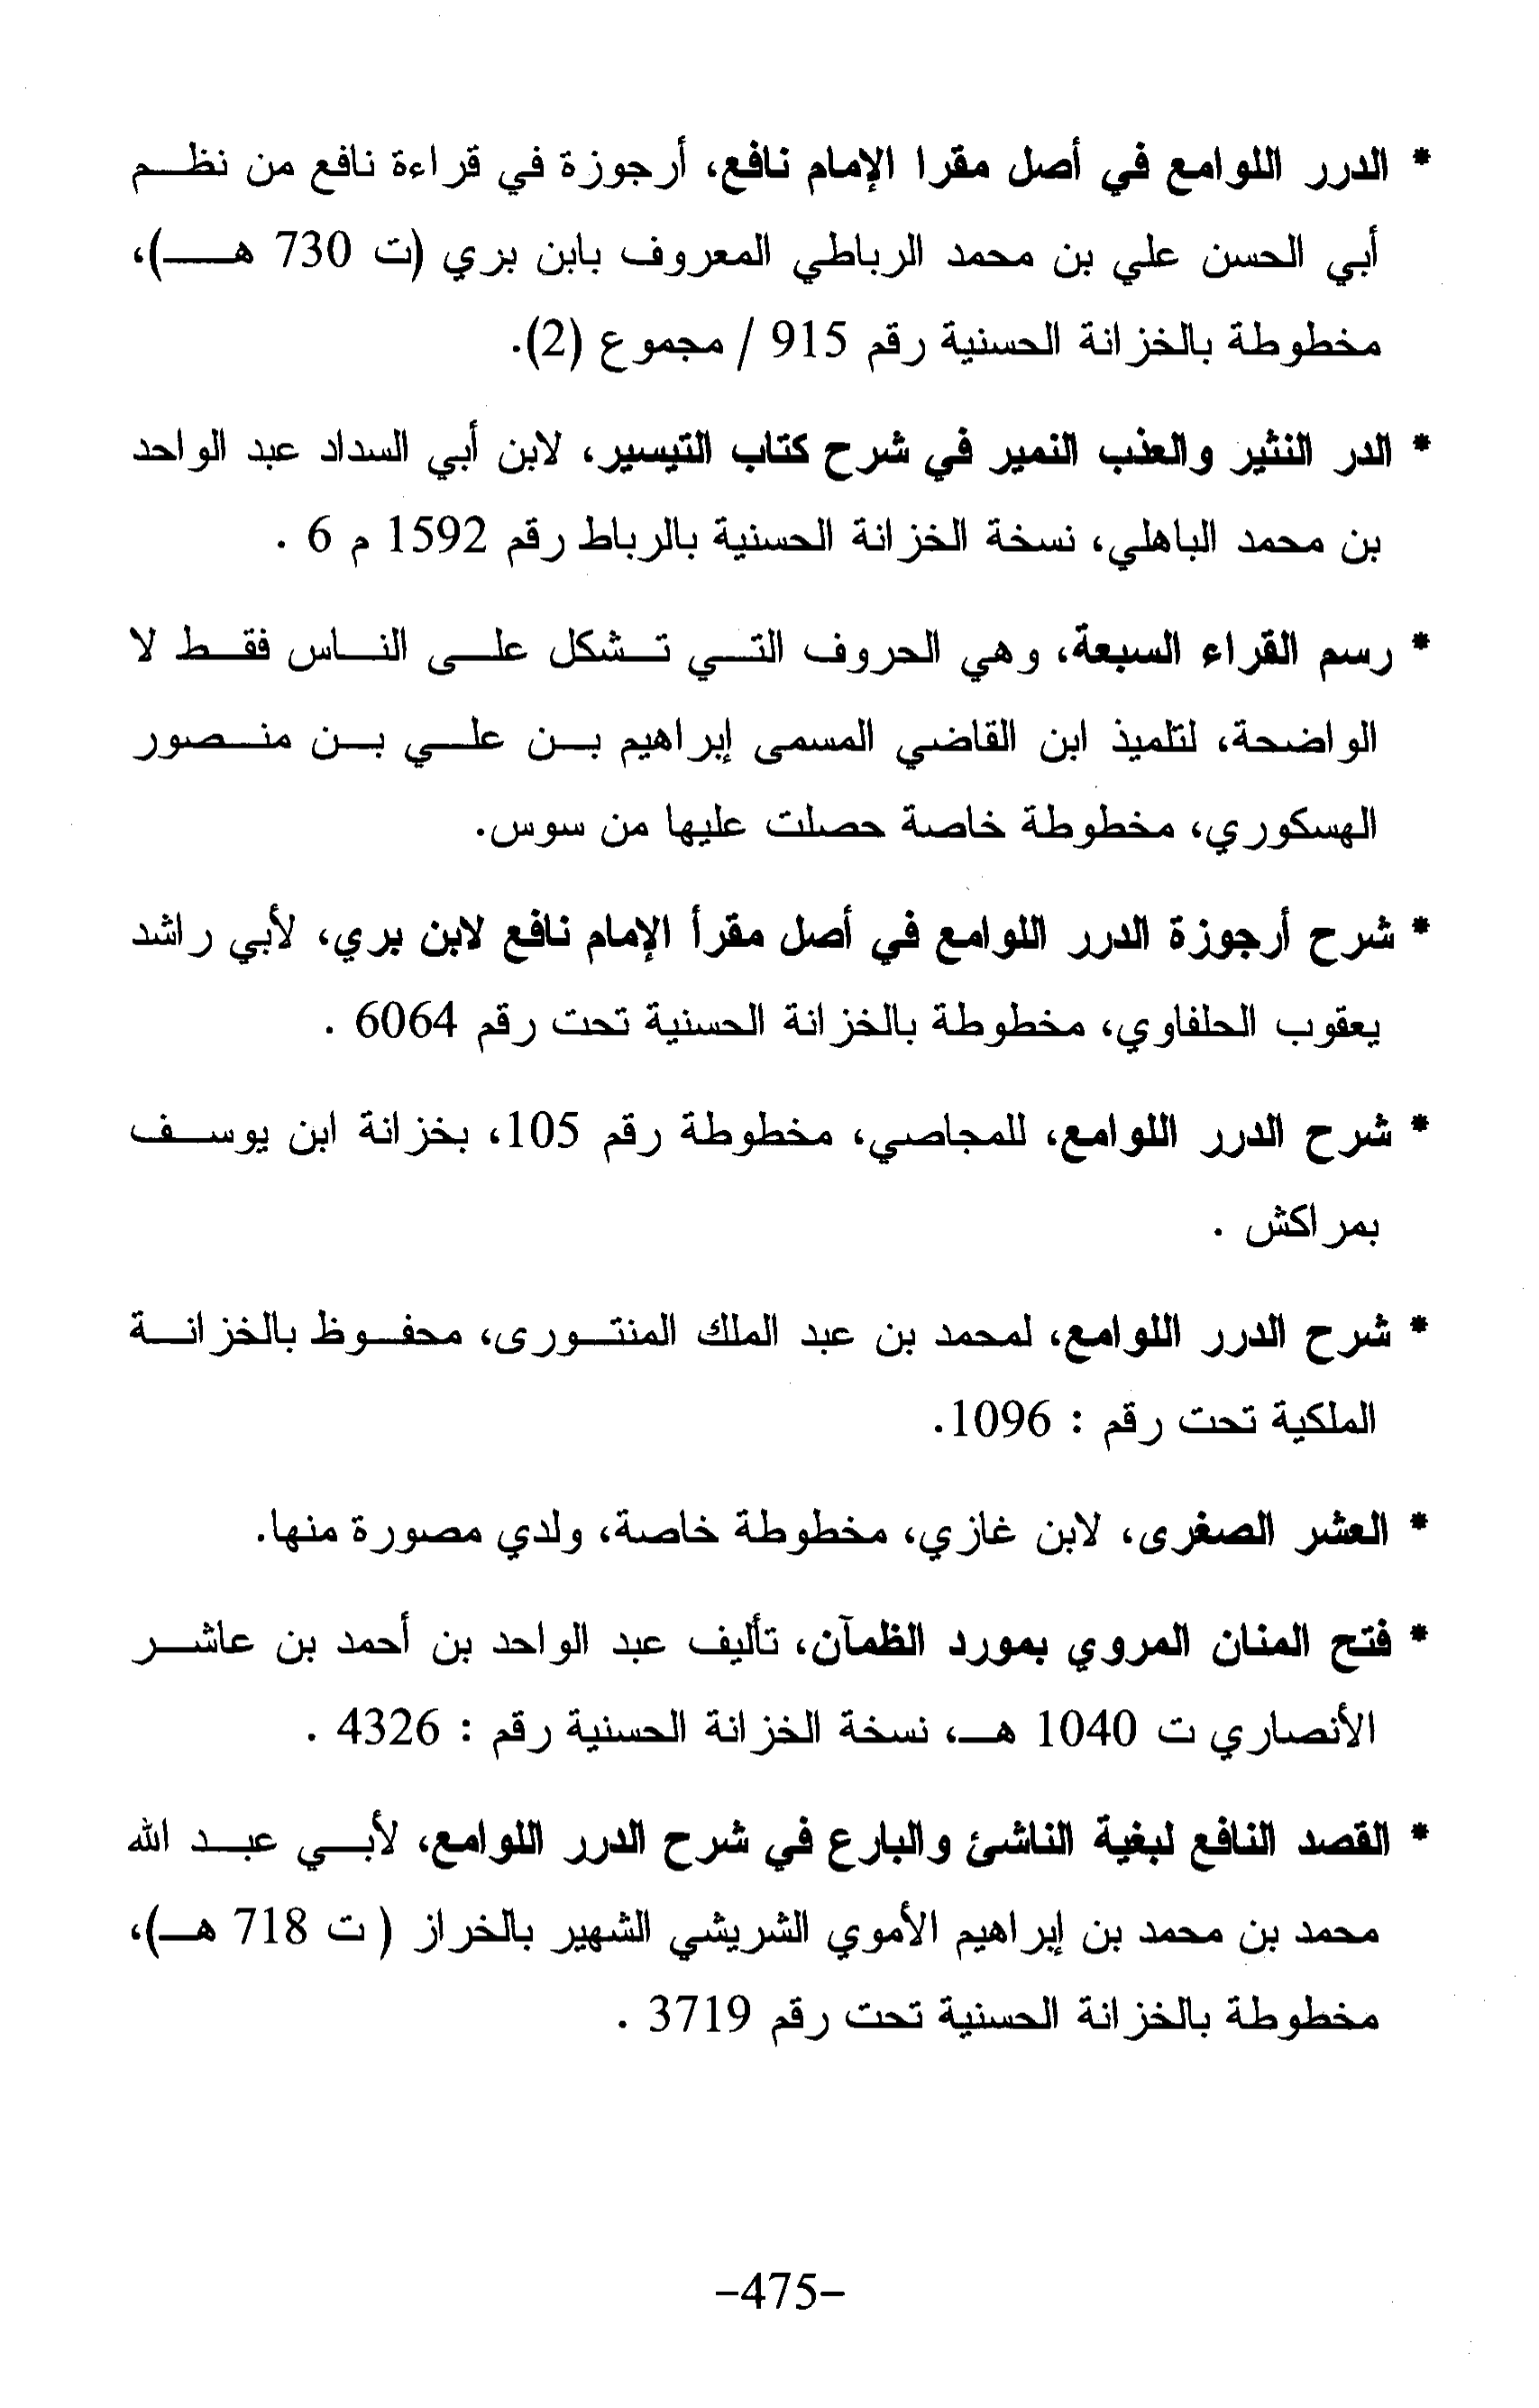 * الدرر اللوامع في أصل مقرا الإمام نافع، أرجوزة في قراءة نافع من نظم
أبي الحسن علي بن محمد الرباطي المعروف بابن بري (ت 730 هـ)،
مخطوطة بالخزانة الحسنية رقم 915 / مجموع (2).
* الدر النثير والعذب النمير في شرح كتاب التيسير، لابن أبي السداد عبد الواحد
بن محمد الباهلي، نسخة الخزانة الحسنية بالرباط رقم 1592 م 6 .
* رسم القراء السبعة، وهي الحروف التي تشكل على الناس فقط لا
الواضحة، لتلميذ ابن القاضي المسمى إبراهيم بن علي بن منصور
الهسكوري، مخطوطة خاصة حصلت عليها من سوس.
* شرح أرجوزة الدرر اللوامع في أصل مقرأ الإمام نافع لابن بري، لأبي راشد
يعقوب الحلفاوي، مخطوطة بالخزانة الحسنية تحت رقم 6064 .
* شرح الدرر اللوامع، للمجاصي، مخطوطة رقم 105، بخزانة ابن يوسف
بمراكش .
* شرح الدرر اللوامع، لمحمد بن عبد الملك المنتورى، محفوظ بالخزانة
الملكية تحت رقم : 1096.
* العشر الصغرى، لابن غازي، مخطوطة خاصة، ولدي مصورة منها.
* فتح المنان المروي بمورد الظمآن، تأليف عبد الواحد بن أحمد بن عاشر
الأنصاري ت 1040 هـ، نسخة الخزانة الحسنية رقم : 4326 .
* القصد النافع لبغية الناشئ والبارع في شرح الدرر اللوامع، لأبي عبد الله
محمد بن محمد بن إبراهيم الأموي الشريشي الشهير بالخراز ( ت 718 هـ)،
مخطوطة بالخزانة الحسنية تحت رقم 3719 .
-475-